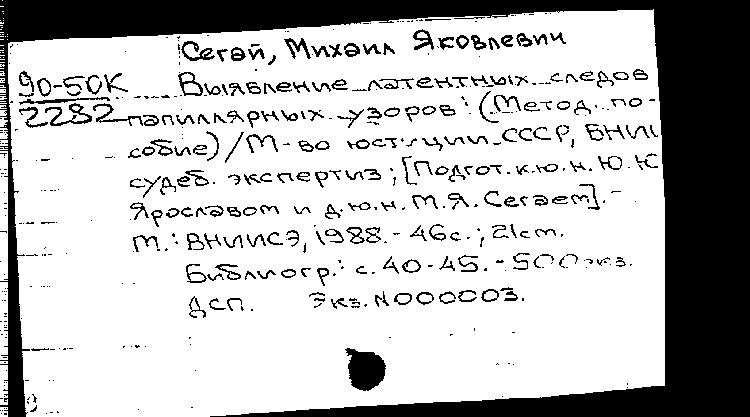 Сегай, Михаил Яковлевич
90-50К Выявление латентных следов
2282 папиллярных узоров: (Метод. по-
собие) / М-во юстиции СССР, ВНИИ
судеб. экспертиз; [Подгот. к.ю.н. Ю. К
Ярославом и д.ю.н. М.Я. Сегаем]. -
М.: ВНИИСЭ, 1988. - 46с.; 21см.
Библиогр.: с. 40-45. - 500 экз.
ДСП. Экз. N000003.